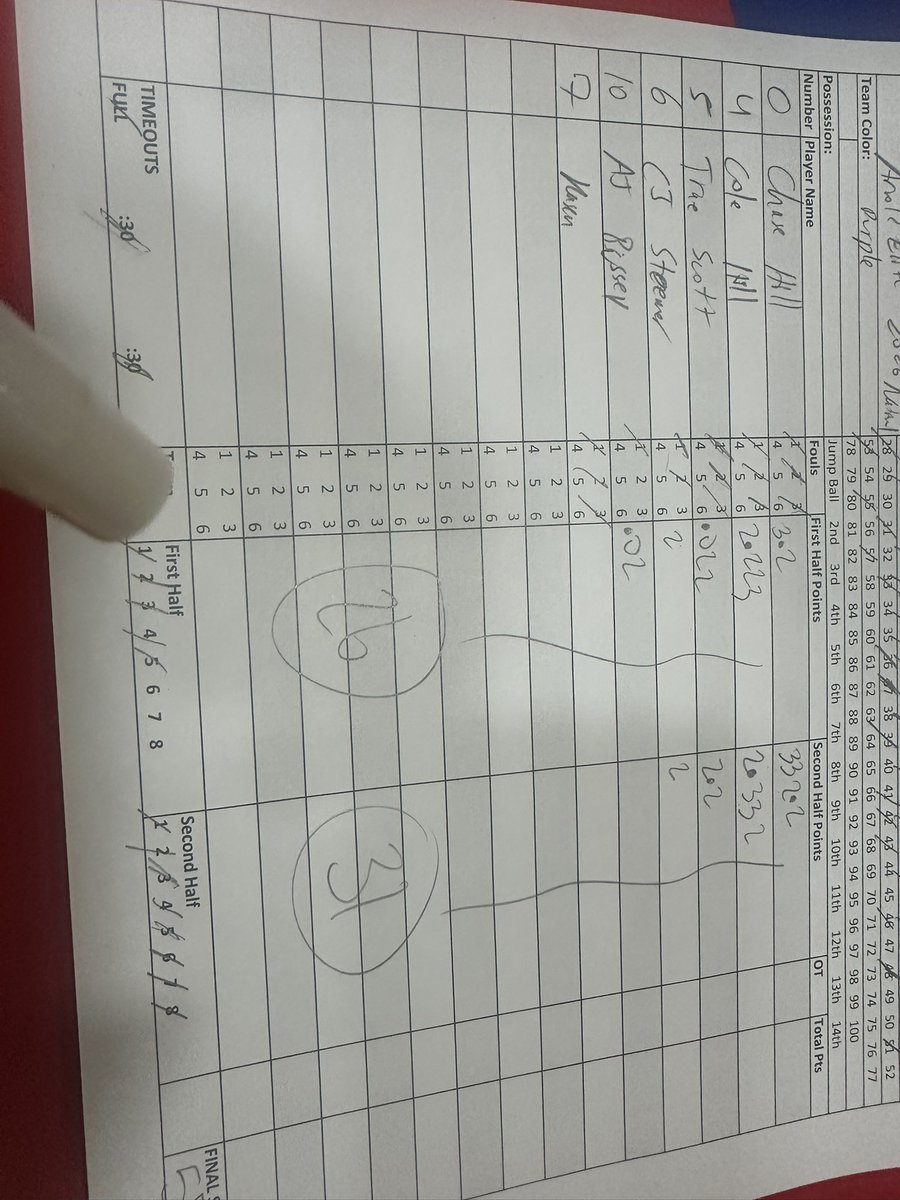 28 29 30 31 32 33 34 35 36 37 38 39 40 41 42 43 44 45 46 47 48 49 50 51 52
Team Color: Purple 53 54 55 56 57 58 59 60 61 62 63 64 65 66 67 68 69 70 71 72 73 74 75 76 77
78 79 80 81 82 83 84 85 86 87 88 89 90 91 92 93 94 95 96 97 98 99 100
Possession: Jump Ball 2nd 3rd 4th 5th 6th 7th 8th 9th 10th 11th 12th 13th 14th
Number Player Name Fouls First Half Points Second Half Points OT Total Pts
0 Chase Hill 1 2 3 3 0 2 33202
4 5 6
4 Cole Hill 1 2 3 20223 20332
4 5 6
5 Trae Scott 1 2 3 0022 202
4 5 6
6 CJ 1 2 3 2 2
4 5 6
10 AJ Bissey 1 2 3 002
4 5 6
7 1 2 3
4 5 6
1 2 3
4 5 6
1 2 3
4 5 6
1 2 3
4 5 6
1 2 3
4 5 6
26 31
1 2 3
4 5 6
1 2 3
4 5 6
1 2 3
4 5 6
1 2 3
4 5 6
First Half Second Half FINAL
TIMEOUTS 1 2 3 4 5 6 7 8 1 2 3 4 5 6 7 8
FULL :30 :30